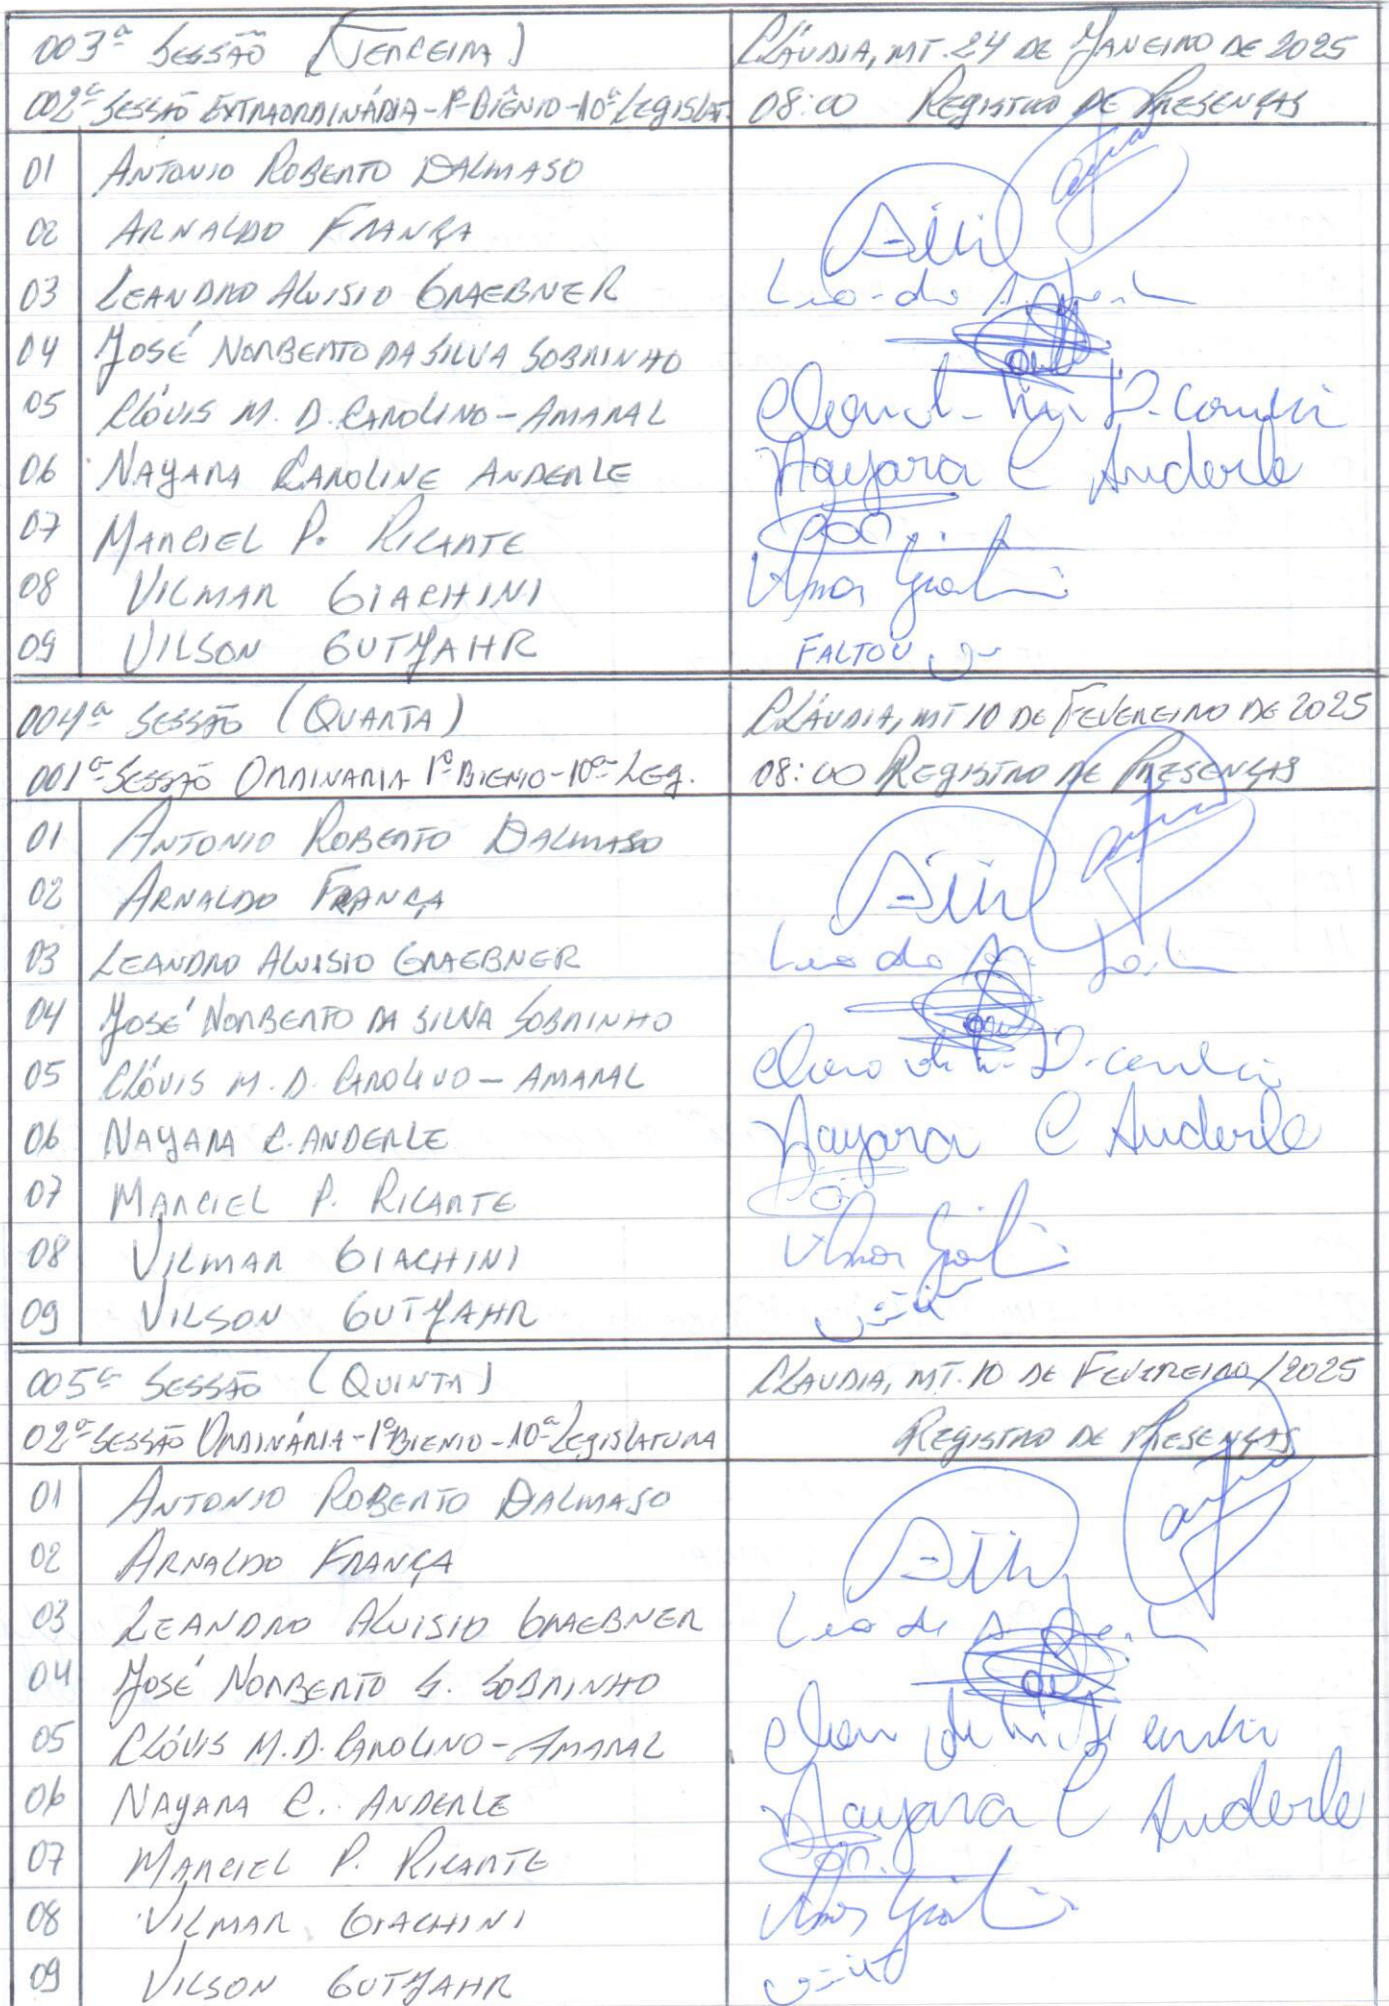 003ª SESSÃO (TERCEIRA)
CLÁUDIA, MT. 24 DE JANEIRO DE 2025
002ª SESSÃO EXTRAORDINÁRIA - 1º BIÊNIO - 10ª LEGISLAT.
08:00 REGISTRO DE PRESENÇAS
01 ANTONIO ROBERTO DALMASO
02 ARNALDO FRANÇA
03 LEANDRO ALUISIO GRAEBNER
04 JOSÉ NORBERTO DA SILVA SOBRINHO
05 CLÓVIS M. D. CAROLINO - AMARAL
06 NAYARA CAROLINE ANDERLE Nayara C Anderle
07 MARCIEL P. RICARTE
08 VILMAR GIACHINI
09 VILSON GUTJAHR FALTOU
004ª SESSÃO (QUARTA)
CLÁUDIA, MT 10 DE FEVEREIRO DE 2025
001ª SESSÃO ORDINARIA 1º BIENIO - 10ª LEG.
08:00 REGISTRO DE PRESENÇAS
01 ANTONIO ROBERTO DALMASO
02 ARNALDO FRANÇA
03 LEANDRO ALUISIO GRAEBNER
04 JOSÉ NORBERTO DA SILVA SOBRINHO
05 CLÓVIS M. D. CAROLINO - AMARAL
06 NAYARA C. ANDERLE Nayara C Anderle
07 MARCIEL P. RICARTE
08 VILMAR GIACHINI
09 VILSON GUTJAHR
005ª SESSÃO (QUINTA)
CLAUDIA, MT. 10 DE FEVEREIRO/2025
02ª SESSÃO ORDINÁRIA - 1º BIENIO - 10ª LEGISLATURA
REGISTRO DE PRESENÇAS
01 ANTONIO ROBERTO DALMASO
02 ARNALDO FRANÇA
03 LEANDRO ALUISIO GRAEBNER
04 JOSÉ NORBERTO S. SOBRINHO
05 CLÓVIS M. D. CAROLINO - AMARAL
06 NAYARA C. ANDERLE Nayara C Anderle
07 MARCIEL P. RICARTE
08 VILMAR GIACHINI
09 VILSON GUTJAHR